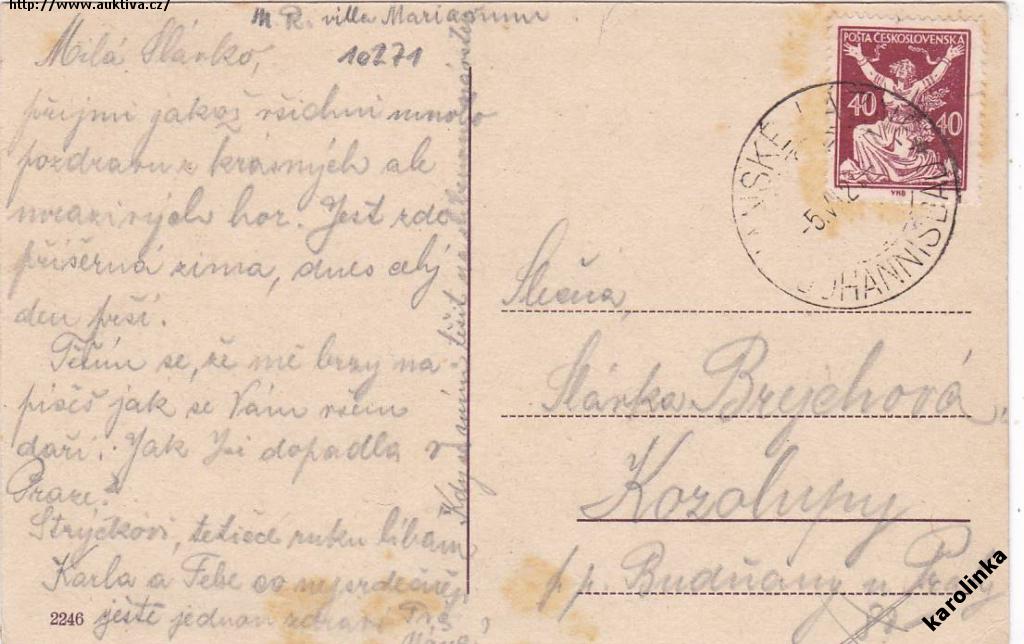 http://www.auktiva.cz/
M. R. villa Marianna
10271
Milá Slávko,
přijmi jakož všichni mnoho
pozdravů z krásných ale
mrazivých hor. Jest zde
příšerná zima, dnes celý
den prší.
Těším se, že mě brzy na-
píšeš jak se Vám všem
daří. Jak Jsi dopadla v
Praze?
Strýčkovi, tetičce ruku líbám
Karla a Tebe co nejsrdečněji
ještě jednou zdraví
Kdy se
těšit na
POŠTA ČESKOSLOVENSKÁ
40 40
VHB
JANSKÉ LÁZNĚ
-5.VI.2
JOHANNISBAD
Slečna,
Slávka Brychová
Kozolupy
p.p. Budňany u Prahy
2246
karolinka